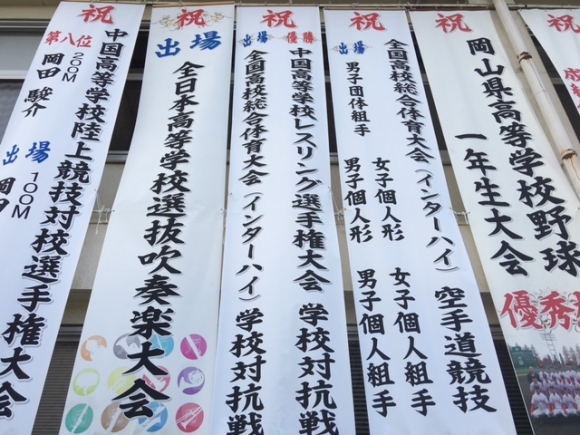 祝
中国高等学校陸上競技対校選手権大会
第八位
200M
岡田 駿介
出場
100M
岡田
祝
出場
全日本高等学校選抜吹奏楽大会
祝
優勝
中国高等学校レスリング選手権大会 学校対抗戦
出場
全国高校総合体育大会(インターハイ)学校対抗戦
祝
全国高校総合体育大会(インターハイ) 空手道競技
出場
女子個人形 女子個人組手
男子団体組手 男子個人形 男子個人組手
祝
岡山県高等学校野球
一年生大会
優秀
祝